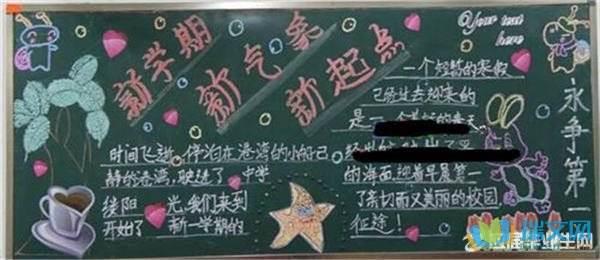 新学期
新气象
新起点
Your text
here
永争第一
时间飞逝,停泊在港湾的小船已
静的港湾,驶进了 中学
缕阳 光,我们来到
开始了 新一学期的
一个短暂的寒假
已经过去迎来的
是一个
的海面,迎着早晨第一
了亲切而又美丽的校园
征途!
毕业生网